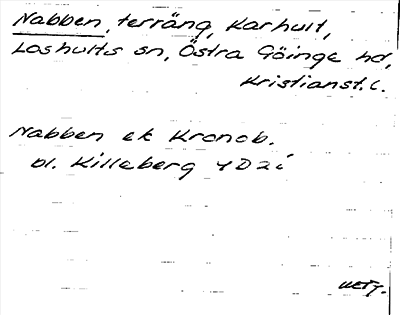 Nabben, terräng, Karhult,
Loshults sn, Östra Göinge hd,
Kristianst. l.
Nabben ek Kronob.
bl. Killeberg 4D2i